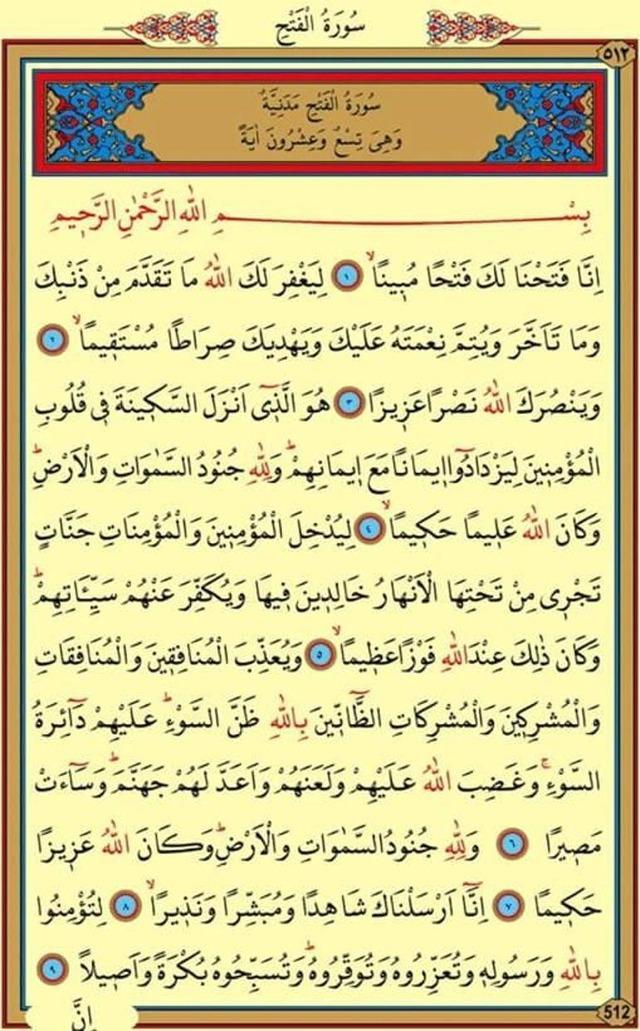 سُورَةُ الْفَتْحِ
٥١٢
سُورَةُ الْفَتْحِ مَدَنِيَّةٌ
وَهِىَ تِسْعٌ وَعِشْرُونَ اٰيَةً
بِسْمِ اللّٰهِ الرَّحْمٰنِ الرَّحٖيمِ
اِنَّا فَتَحْنَا لَكَ فَتْحًا مُبٖينًاۙ ﴿١﴾ لِيَغْفِرَ لَكَ اللّٰهُ مَا تَقَدَّمَ مِنْ ذَنْبِكَ
وَمَا تَاَخَّرَ وَيُتِمَّ نِعْمَتَهُ عَلَيْكَ وَيَهْدِيَكَ صِرَاطًا مُسْتَقٖيمًاۙ ﴿٢﴾
وَيَنْصُرَكَ اللّٰهُ نَصْرًا عَزٖيزًا ﴿٣﴾ هُوَ الَّذٖٓى اَنْزَلَ السَّكٖينَةَ فٖى قُلُوبِ
الْمُؤْمِنٖينَ لِيَزْدَادُٓوا اٖيمَانًا مَعَ اٖيمَانِهِمْؕ وَلِلّٰهِ جُنُودُ السَّمٰوَاتِ وَالْاَرْضِؕ
وَكَانَ اللّٰهُ عَلٖيمًا حَكٖيمًاۙ ﴿٤﴾ لِيُدْخِلَ الْمُؤْمِنٖينَ وَالْمُؤْمِنَاتِ جَنَّاتٍ
تَجْرٖى مِنْ تَحْتِهَا الْاَنْهَارُ خَالِدٖينَ فٖيهَا وَيُكَفِّرَ عَنْهُمْ سَيِّـَٔاتِهِمْؕ
وَكَانَ ذٰلِكَ عِنْدَ اللّٰهِ فَوْزًا عَظٖيمًاۙ ﴿٥﴾ وَيُعَذِّبَ الْمُنَافِقٖينَ وَالْمُنَافِقَاتِ
وَالْمُشْرِكٖينَ وَالْمُشْرِكَاتِ الظَّٓانّٖينَ بِاللّٰهِ ظَنَّ السَّوْءِؕ عَلَيْهِمْ دَٓائِرَةُ
السَّوْءِۚ وَغَضِبَ اللّٰهُ عَلَيْهِمْ وَلَعَنَهُمْ وَاَعَدَّ لَهُمْ جَهَنَّمَؕ وَسَٓاءَتْ
مَصٖيرًا ﴿٦﴾ وَلِلّٰهِ جُنُودُ السَّمٰوَاتِ وَالْاَرْضِؕ وَكَانَ اللّٰهُ عَزٖيزًا
حَكٖيمًا ﴿٧﴾ اِنَّٓا اَرْسَلْنَاكَ شَاهِدًا وَمُبَشِّرًا وَنَذٖيرًاۙ ﴿٨﴾ لِتُؤْمِنُوا
بِاللّٰهِ وَرَسُولِهٖ وَتُعَزِّرُوهُ وَتُوَقِّرُوهُؕ وَتُسَبِّحُوهُ بُكْرَةً وَاَصٖيلًا ﴿٩﴾
512
اِنَّ